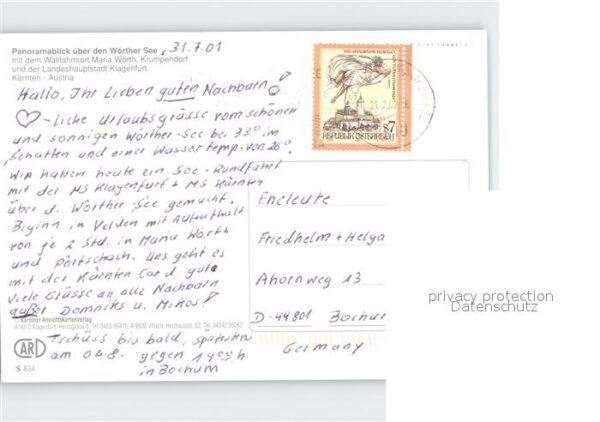 Panoramablick über den Wörther See
mit dem Wallfahrtsort Maria Wörth, Krumpendorf
und der Landeshauptstadt Klagenfurt
Kärnten - Austria
31.7.01
Hallo, Ihr Lieben guten Nachbarn!
♡-liche Urlaubsgrüsse vom schönen
und sonnigen Wörther-See bei 33° im
Schatten und einer Wassertemp. von 26°
Wir haben heute ein See-Rundfahrt
mit der MS Klagenfurt + MS Kärnten
über d. Wörther-See gemacht.
Beginn in Velden mit Aufenthalt
von je 2 Std. in Maria Wörth
und Pörtschach. Uns geht es
mit der Kärnten Card gut.
Viele Grüsse an alle Nachbarn
außer Domniks u. Mikos!
Kärntner Ansichtskartenverlag
Tschüss bis bald, spätestens
am 04.8. gegen 1900h
in Bochum
AR
S 834
s7
REPUBLIK ÖSTERREICH
Eheleute
Friedhelm + Helga
Ahornweg 13
D-44801 Bochum
Germany
privacy protection
Datenschutz